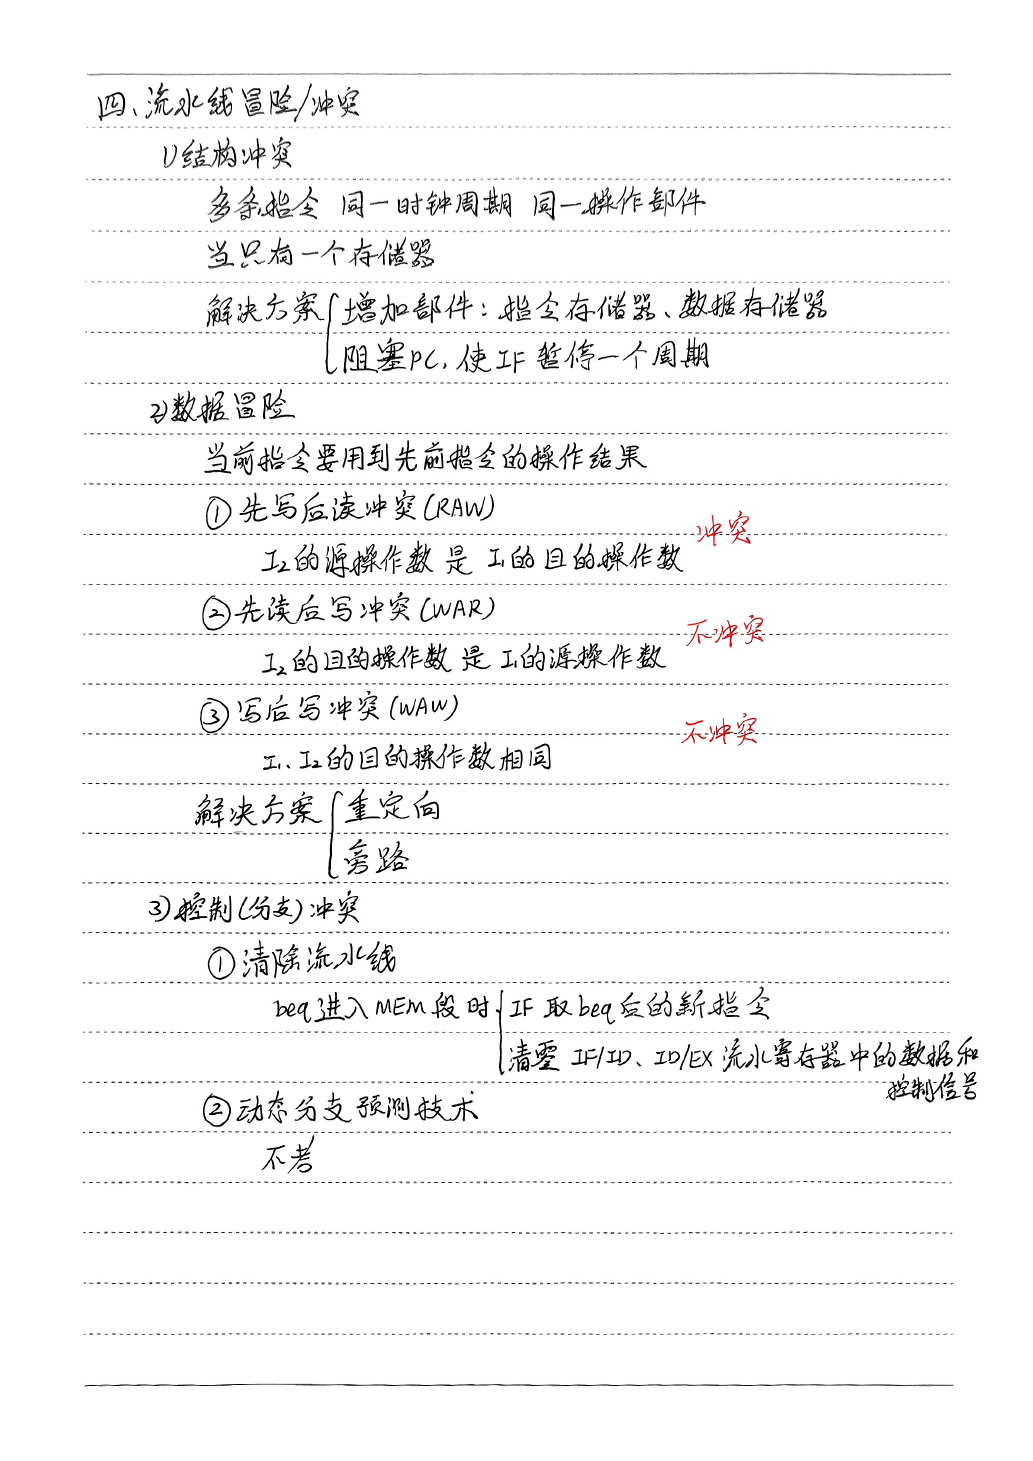 四、流水线冒险/冲突
1)结构冲突
多条指令 同一时钟周期 同一操作部件
当只有一个存储器
解决方案 增加部件：指令存储器、数据存储器
阻塞PC，使IF暂停一个周期
2)数据冒险
当前指令要用到先前指令的操作结果
①先写后读冲突(RAW)
冲突
I2的源操作数是I1的目的操作数
②先读后写冲突(WAR)
不冲突
I2的目的操作数是I1的源操作数
③写后写冲突(WAW)
不冲突
I1、I2的目的操作数相同
解决方案 重定向
旁路
3)控制(分支)冲突
①清除流水线
beq进入MEM段时 IF取beq后的新指令
清零 IF/ID、ID/EX流水寄存器中的数据和
控制信号
②动态分支预测技术
不考